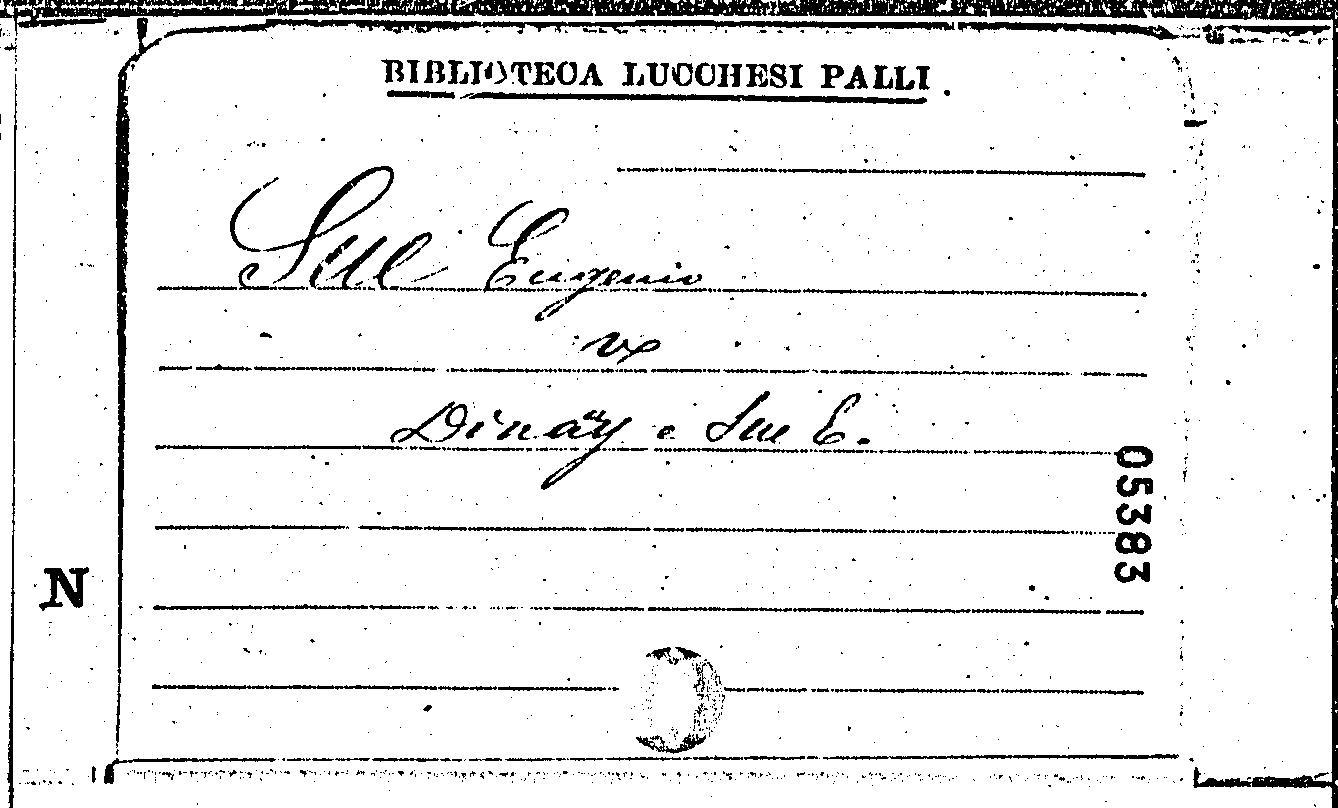 BIBLIOTECA LUCCHESI PALLI
Sue Eugenio
Dinaÿ e Sue E.
05383
N